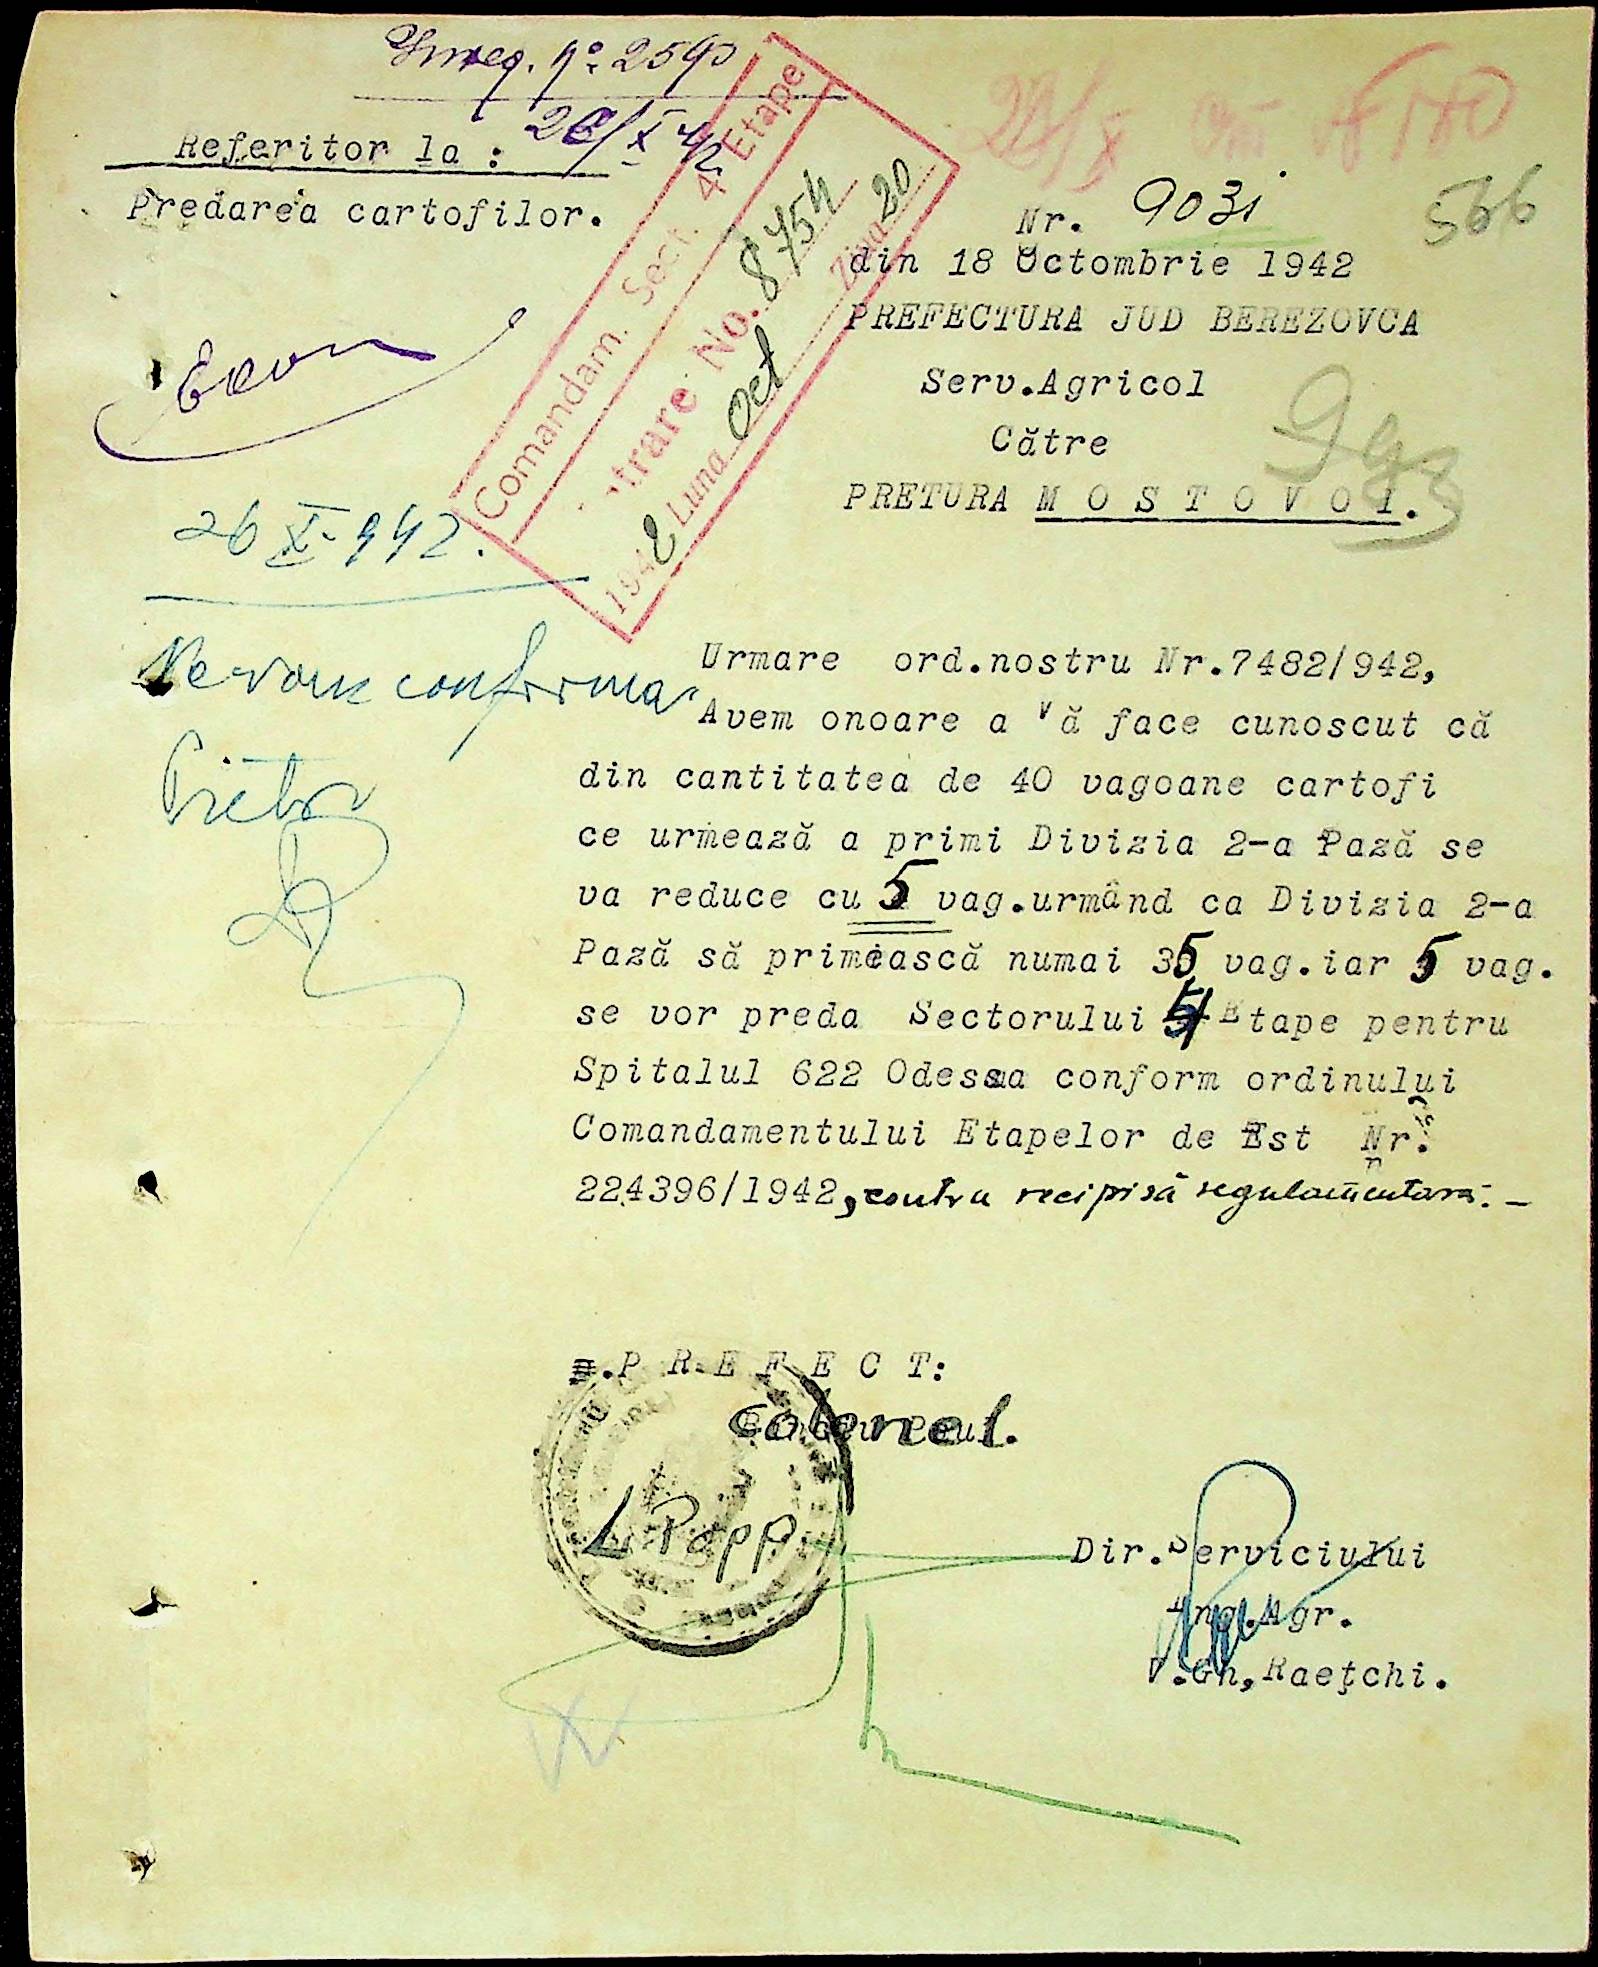 Inreg. No 2590
26/X 42
Referitor la :
Predarea cartofilor.
Comandam. Sect. 4 Etape
Intrare No. 8754
1942 Luna Oct Ziua 20
566
Nr. 9031
din 18 Octombrie 1942
PREFECTURA JUD BEREZOVCA
Serv.Agricol
Către
PRETURA M O S T O V O I.
26 X 942.
Ne vom conforma
Pretor
Urmare ord.nostru Nr.7482/942,
Avem onoare a Vă face cunoscut că
din cantitatea de 40 vagoane cartofi
ce urmează a primi Divizia 2-a Pază se
va reduce cu 5 vag.urmând ca Divizia 2-a
Pază să primească numai 35 vag.iar 5 vag.
se vor preda Sectorului 4 Etape pentru
Spitalul 622 Odessa conform ordinului
Comandamentului Etapelor de Est Nr.
224396/1942, contra recipisă regulamentară.-
P R E F E C T:
Colonel.
L Popp
Dir.Serviciului
Ing.Agr.
V.Gh,Raețchi.